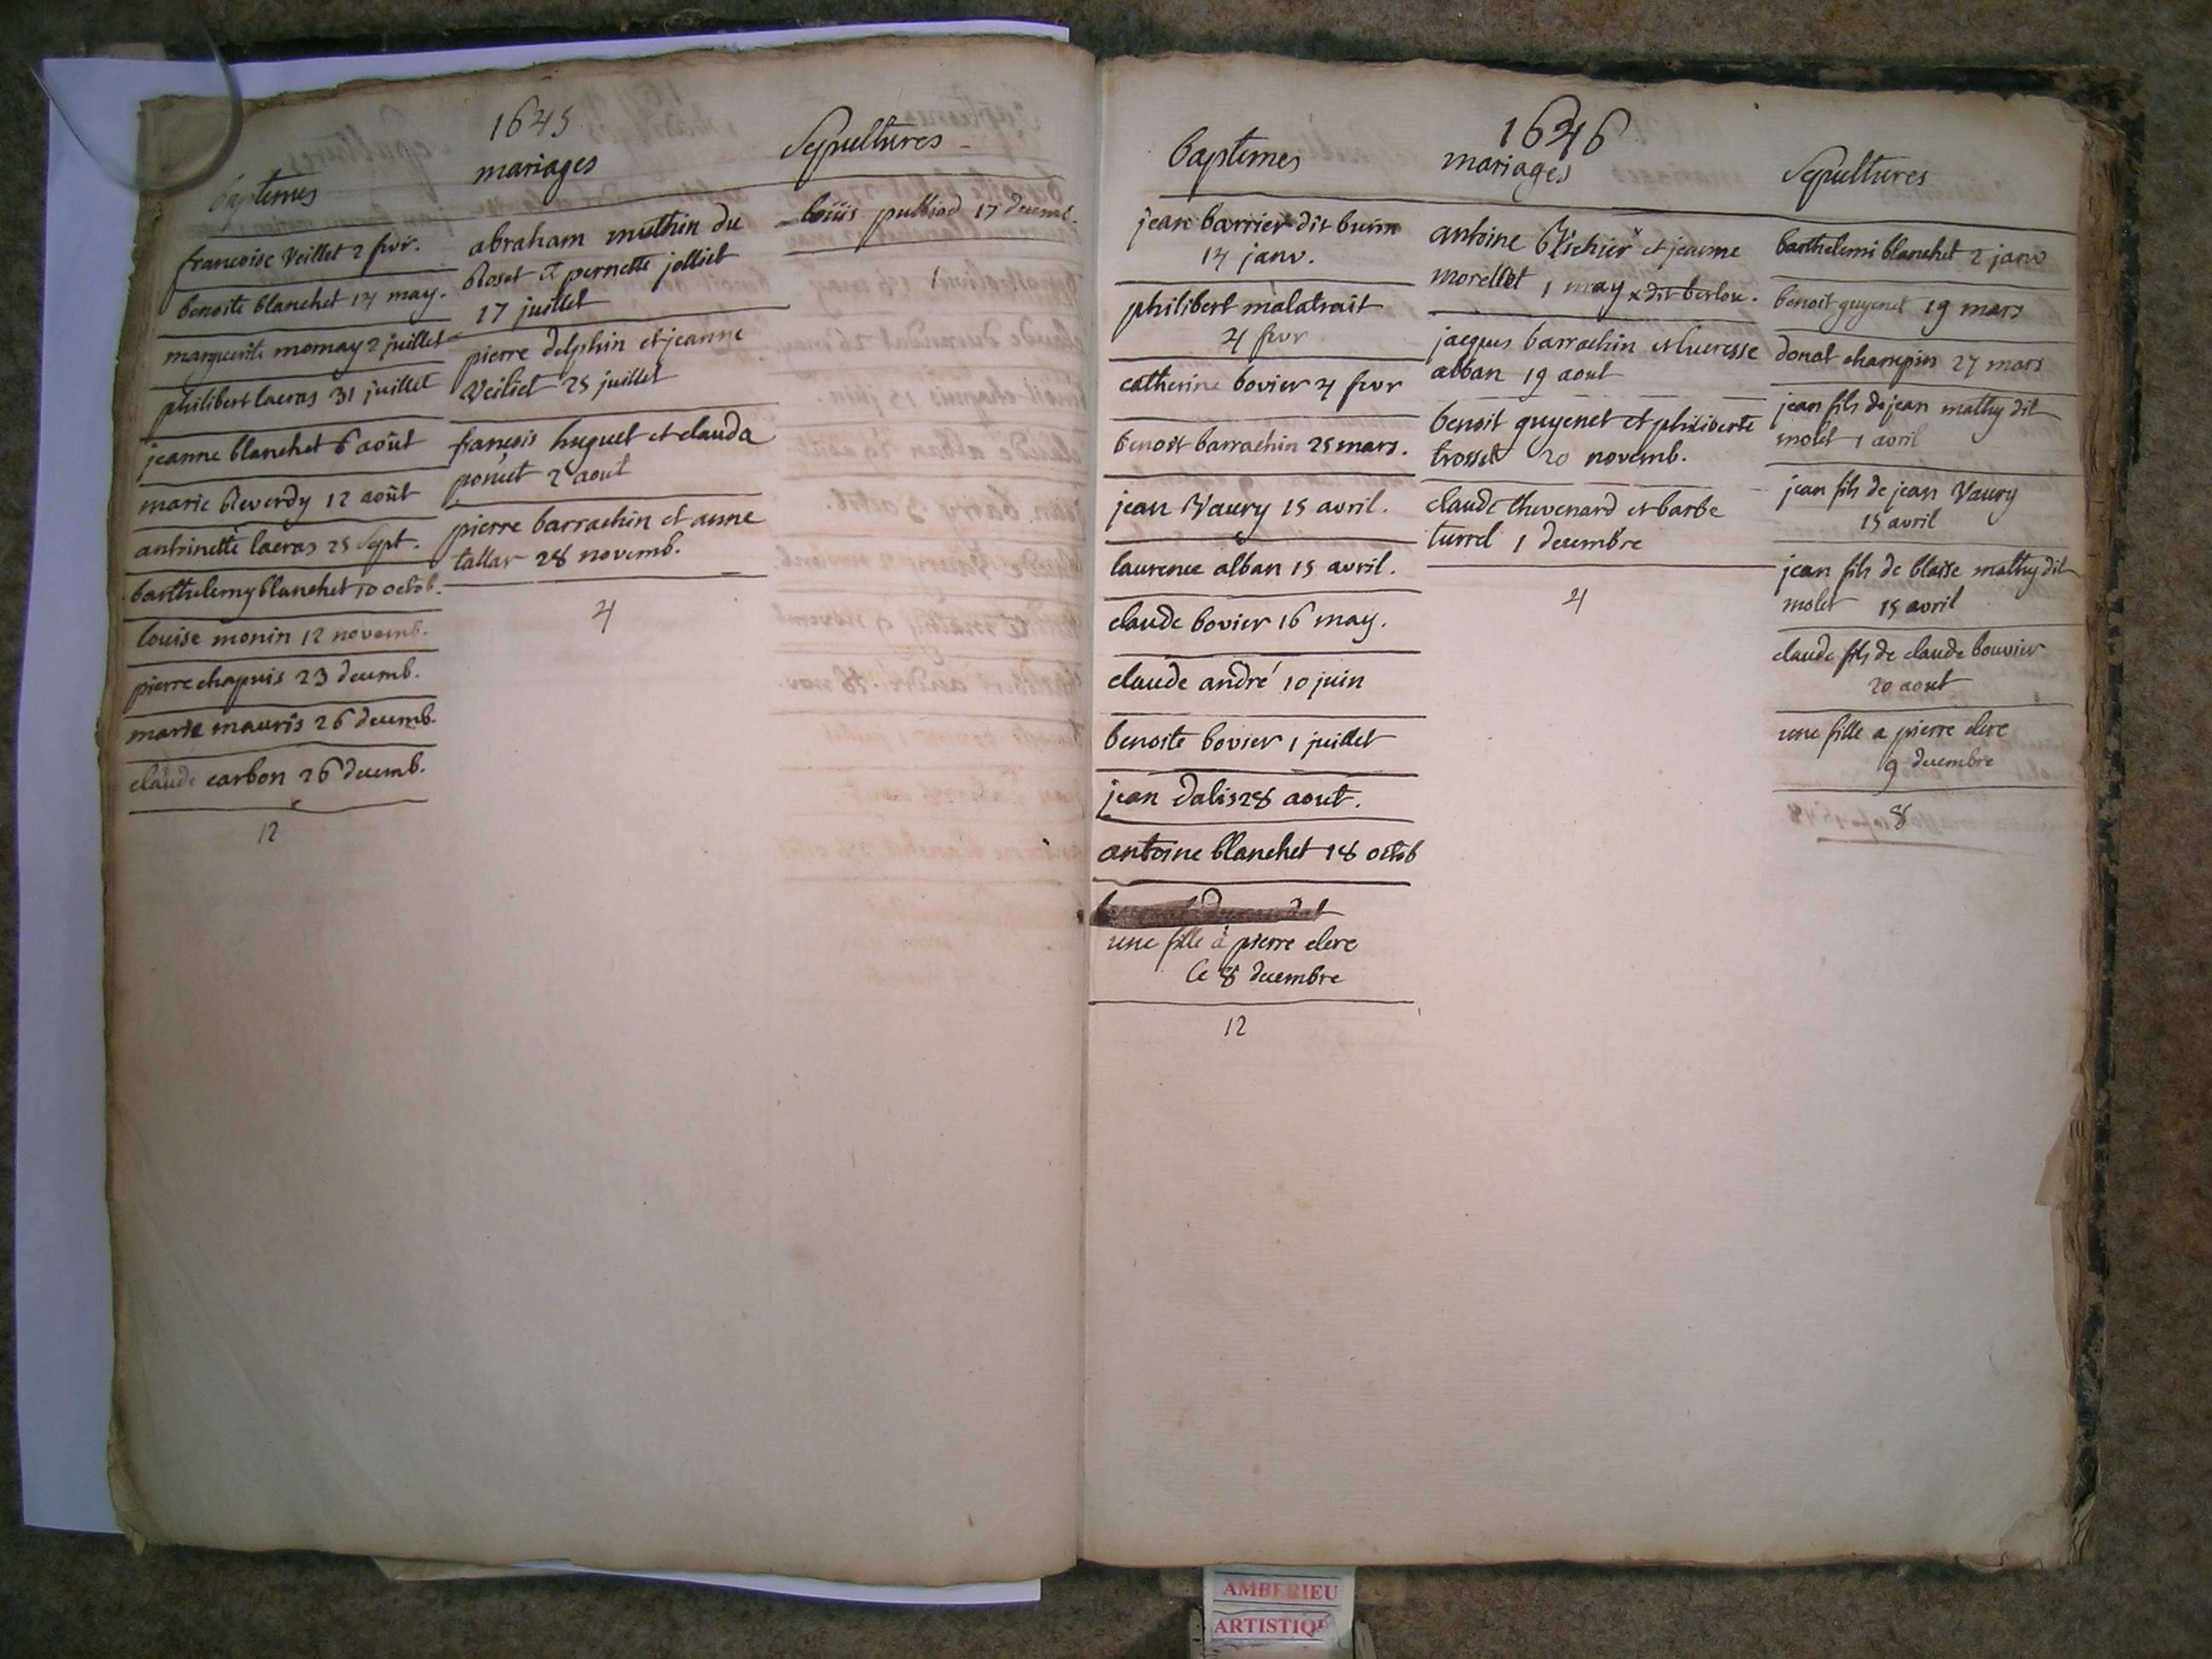 1645
baptemes
francoise Veillet 2 fevr.
benoite blanchet 14 may.
marguerite momay 2 juillet
philibert lacras 31 juillet
jeanne blanchet 6 août
marie Reverdy 12 août
antoinette lacras 25 Sept.
barthelemy blanchet 10 octob.
louise monin 12 novemb.
pierre chapuis 23 decemb.
marie mauris 26 decemb.
claude carbon 26 decemb.
12
mariages
abraham muthin du
Roset et pernette jolliet
17 juillet
pierre delphin et jeanne
Veillet 25 juillet
françois huguet et clauda
poncet 2 aout
pierre barrachin et anne
tallar 28 novemb.
4
Sepultures
loüis publiod 17 decemb.
1
1646
baptemes
jean barrier dit
14 janv.
philibert malatrait
4 fevr
catherine bovier 4 fevr
benoit barrachin 25 mars.
jean Vaury 15 avril.
laurence alban 15 avril.
claude bovier 16 may.
claude andré 10 juin
benoite bovier 1 juillet
jean dalis 28 aout.
antoine blanchet 18 octob
une fille à pierre clere
le 8 decembre
12
mariages
antoine et jeanne
morellet 1 may x dit berlou.
jacques barrachin et lucresse
alban 19 aout
benoit guyenet et philiberte
trosset 20 novemb.
claude thevenard et barbe
turrel 1 decembre
4
Sepultures
barthelemi blanchet 2 janv
benoit guyenet 19 mars
donat champin 27 mars
jean fils de jean mathy dit
molet 1 avril
jean fils de jean Vaury
15 avril
jean fils de blaise mathy dit
molet 15 avril
claude fils de claude bouvier
20 aout
une fille a pierre clere
9 decembre
8
AMBERIEU
ARTISTIQ